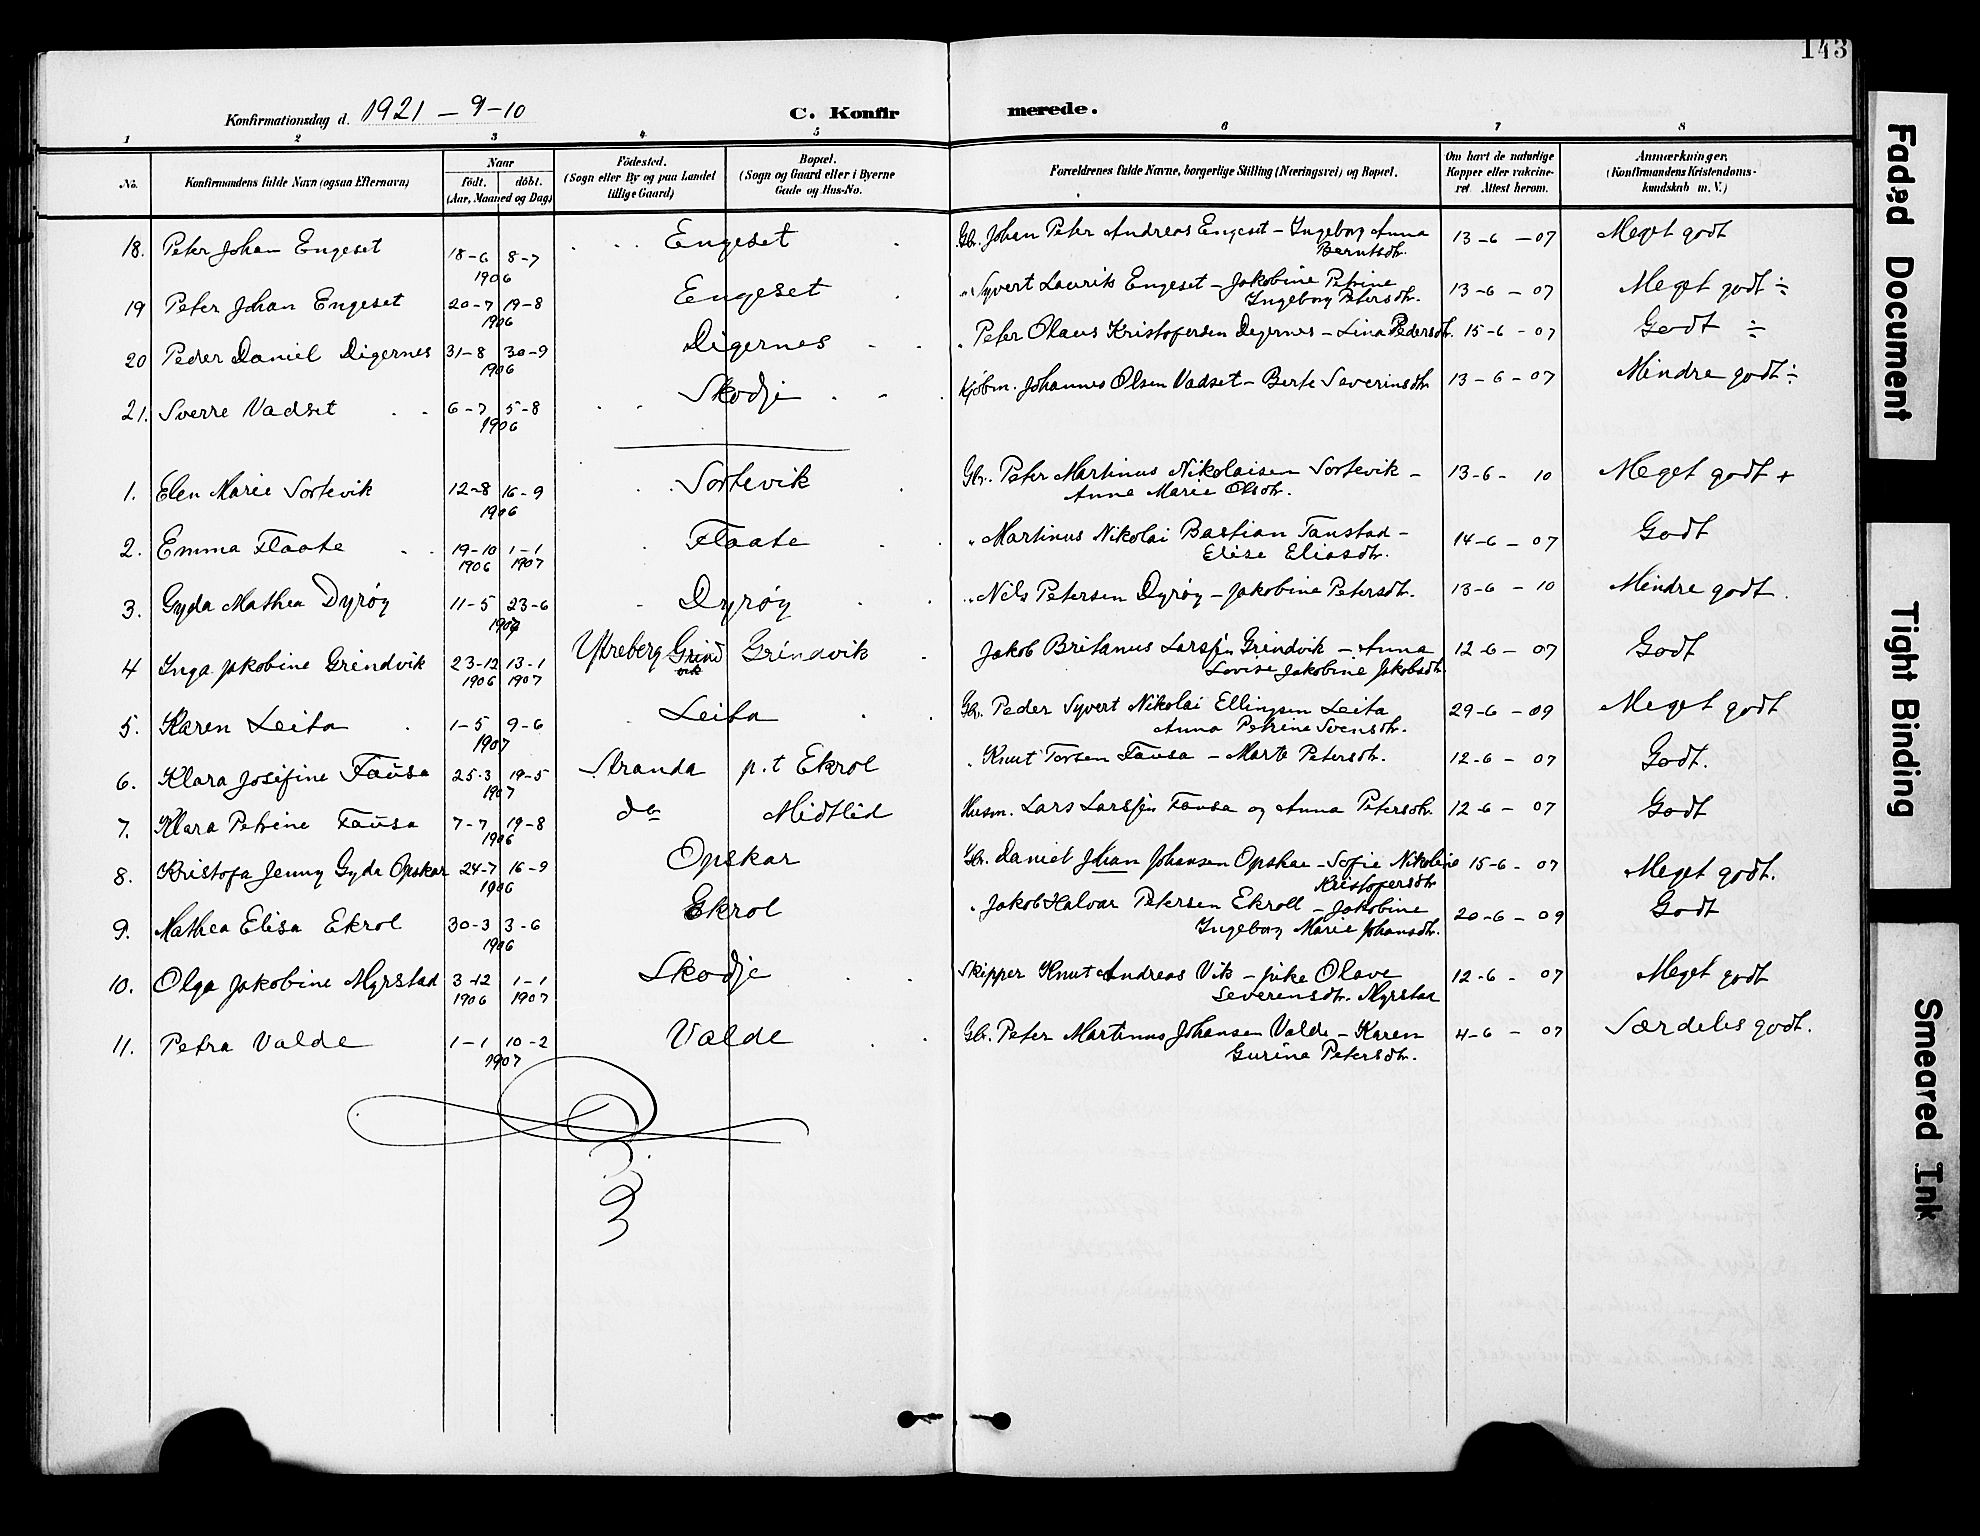 143
Konfirmationsdag d. 1921 – 9–10 C. Konfir merede.
1 2 3 4 5 6 7 8
No. Konfirmandens fulde Navn (ogsaa Efternavn) Naar födt. döbt. (Aar, Maaned og Dag) Födested. (Sogn eller By og paa Landet tillige Gaard) Bopæl. (Sogn og Gaard eller i Byerne Gade og Hus-No. Forældrenes fulde Navne, borgerlige Stilling (Næringsvei) og Bopæl. Om havt de naturlige Kopper eller vakcineret. Attest herom. Anmærkninger. (Konfirmandens Kristendomskundskab m. V.)
18. Peter Johan Engeset 18–6 8–7 Engeset Gbr. Johan Peter Andreas Engeset – Ingeborg Anna 13–6 –07 Meget godt
1906 Berntsdtr.
19 Peter Johan Engeset 20–7 19–8 Engeset " Syvert Laurits Engeset – Jakobine Petrine 13–6 – 07 Meget godt ÷
1906 Ingeborg Petersdtr.
20 Peder Daniel Digernes 31–8 30–9 Digernes " Peter Olaus Kristofersen Degernes – Lina Pedersdtr. 15–6 – 07 Godt ÷
1906
21. Sverre Vadset 6–7 5–8 Skodje Kjöbm. Johannes Olsen Vadset – Berte Severinsdtr 13–6–07 Mindre godt ÷
1906
1. Elen Marie Sortevik 12–8 16–9 Sortevik Gbr. Peter Martinus Nikolaisen Sortevik – 13–6– 10 Meget godt +
1906 Anne Marie Olsdtr.
2. Emma Flaate 19–10 1–1 Flaate " Martinus Nikolai Bastian Tanstad – 14–6 – 07 Godt
1906 1907 Elise Eliasdtr.
3. Gyda Mathea Dyrøy 11–5 23–6 Dyrøy " Nils Petersen Dyrøy – Jakobine Petersdtr. 13–6 – 10 Mindre godt.
1907
4 Inga Jakobine Grindvik 23–12 13–1 Ytreberg Grindvik Grindvik Jakob Britanus Larssen Grindvik – Anna 12–6 – 07 Godt
1906 1907 Lovise Jakobine Jakobsdtr.
5. Karen Leita 1–5 9–6 Leita Gbr. Peder Syvert Nikolai Ellingsen Leita 29–6 – 09 Meget godt
1907 Anna Petrine Svensdtr.
6. Klara Josifine Fausa 25–3 19–5 Stranda p.t Ekrol " Knut Torsen Fausa – Marte Petersdtr. 12–6 – 07 Godt.
1907
7. Klara Petrine Fausa 7–7 19–8 do Midtlid Husm. Lars Larssen Fausa og Anna Petersdtr. 12–6 – 07 Godt
1906
8. Kristofa Jenny Gyda Opskar 24–7 16–9 Opskar Gbr. Daniel Johan Johansen Opskar – Sofie Nikoline 15–6– 07 Meget godt.
1906 Kristofersdtr
9. Mathea Elisa Ekrol 30–3 3–6 Ekrol " Jakob Halvar Petersen Ekroll – Jakobine 20–6 – 09 Godt
1906 Ingeborg Marie Johansdtr.
10. Olga Jakobine Myrstad 3–12 1–1 Skodje Skipper Knut Andreas Vik – pike Olave 12–6 – 07 Meget godt
1906 1907 Severensdtr. Myrstad
11. Petra Valde 1–1 10–2 Valde Gbr. Peter Martinus Johansen Valde – Karen 4–6 – 07 Særdeles godt.
1907 Gurine Petersdtr.
Faded Document
Tight Binding
Smeared Ink